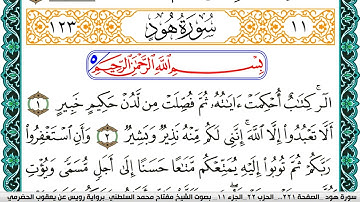 ١١ سُورَةُ هُودٍ ١٢٣
بِسْمِ ٱللَّهِ ٱلرَّحْمَٰنِ ٱلرَّحِيمِ
الٓر ۚ كِتَٰبٌ أُحْكِمَتْ ءَايَٰتُهُۥ ثُمَّ فُصِّلَتْ مِن لَّدُنْ حَكِيمٍ خَبِيرٍ ١
أَلَّا تَعْبُدُوٓا۟ إِلَّا ٱللَّهَ ۚ إِنَّنِى لَكُم مِّنْهُ نَذِيرٌ وَبَشِيرٌ ٢ وَأَنِ ٱسْتَغْفِرُوا۟
رَبَّكُمْ ثُمَّ تُوبُوٓا۟ إِلَيْهِ يُمَتِّعْكُم مَّتَٰعًا حَسَنًا إِلَىٰٓ أَجَلٍ مُّسَمًّى وَيُؤْتِ
سورة هود _ الصفحة ٢٢١_ الحزب ٢٢_ الجزء ١١ _ بصوت الشيخ مفتاح محمد السلطني_ برواية رويس عن يعقوب الحضرمي